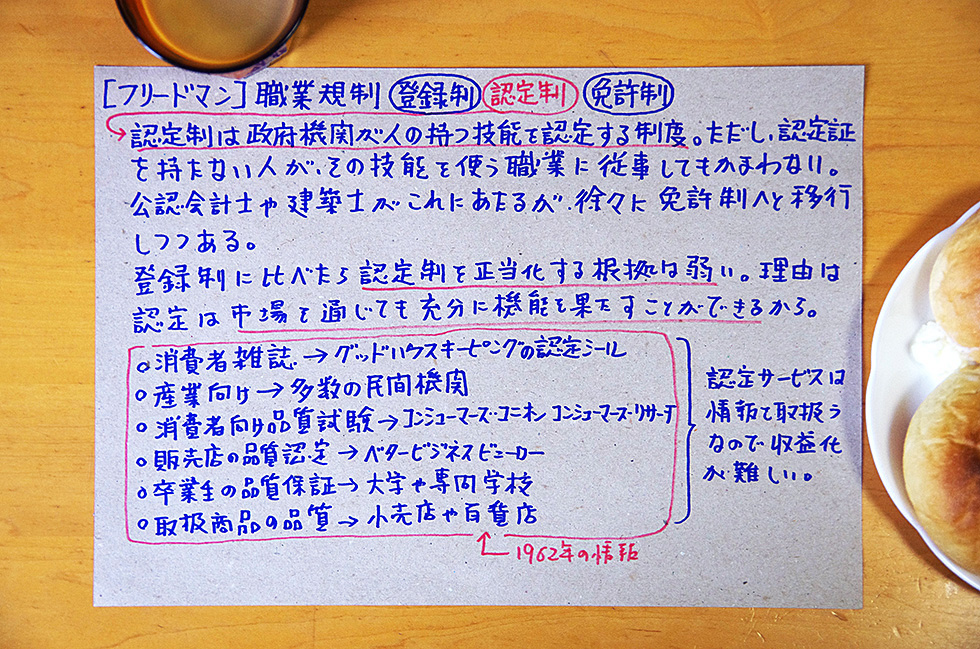 [フリードマン] 職業規制 登録制 認定制 免許制
認定制は政府機関が人の持つ技能を認定する制度。ただし、認定証
を持たない人が、その技能を使う職業に従事してもかまわない。
公認会計士や建築士がこれにあたるが、徐々に免許制へと移行
しつつある。
登録制に比べたら認定制を正当化する根拠は弱い。理由は
認定は市場を通じても充分に機能を果たすことができるから。
○消費者雑誌→グッドハウスキーピングの認定シール
○産業向け→多数の民間機関
○消費者向け品質試験→コンシューマーズ・ユニオン コンシューマーズ・リサーチ
○販売店の品質認定→ベタービジネスビューロー
○卒業生の品質保証→大学や専門学校
○取扱商品の品質→小売店や百貨店
認定サービスは
情報を取扱う
なので収益化
が難しい。
1962年の情報